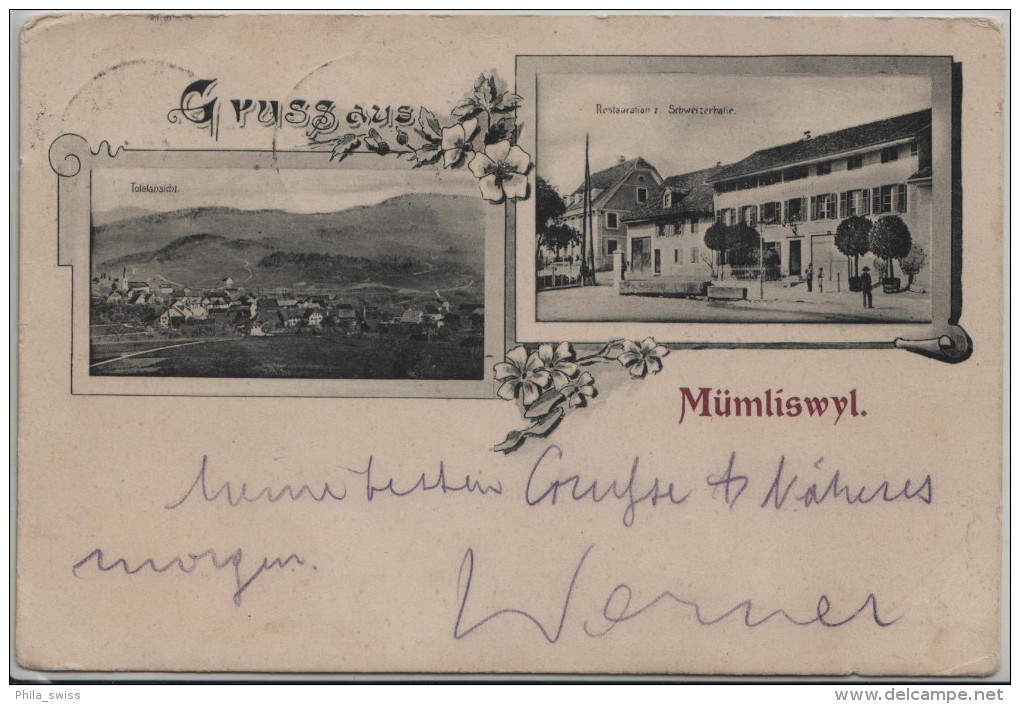 Gruss aus
Totalansicht.
Restauration z. Schweizerhalle.
Mümliswyl.
Meine besten Grüsse & Näheres
morgen.
Werner
Phila_swiss
www.delcampe.net